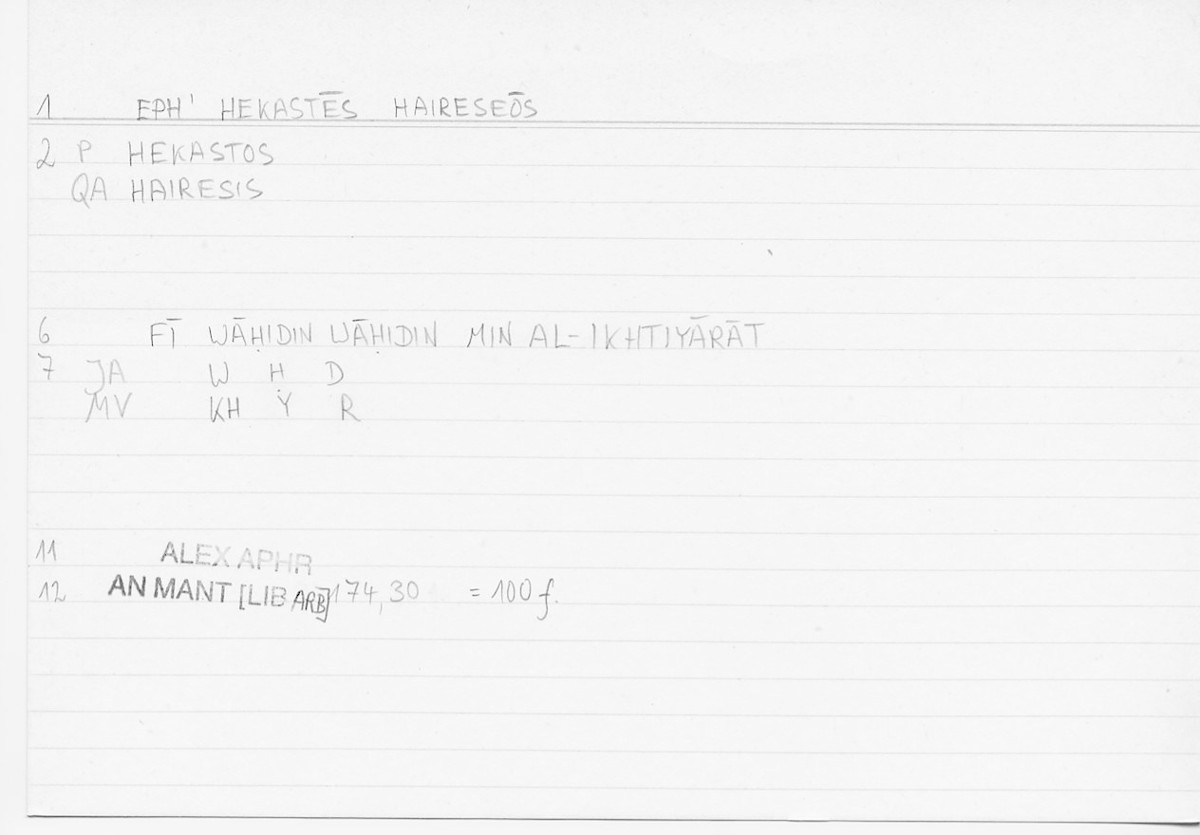 1 EPH' HEKASTĒS HAIRESEŌS
2 P HEKASTOS
QA HAIRESIS
6 FĪ WĀḤIDIN WĀḤIDIN MIN AL-IKHTIYĀRĀT
7 JA W Ḥ D
MV KH Y R
11 ALEX APHR
12 AN MANT [LIB ARB] 174,30 = 100 f.